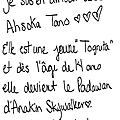 je suis en
Ahsoka Tano ♡♡♡
Elle est une jeune "Togruta"
et dès l'âge de 14 ans
elle devient le Padawan
d'Anakin Skywalker